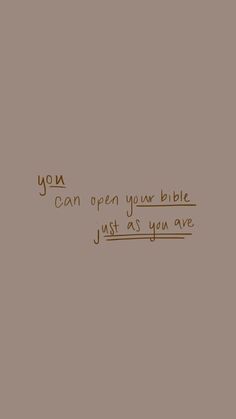 you
can open your bible
just as you are